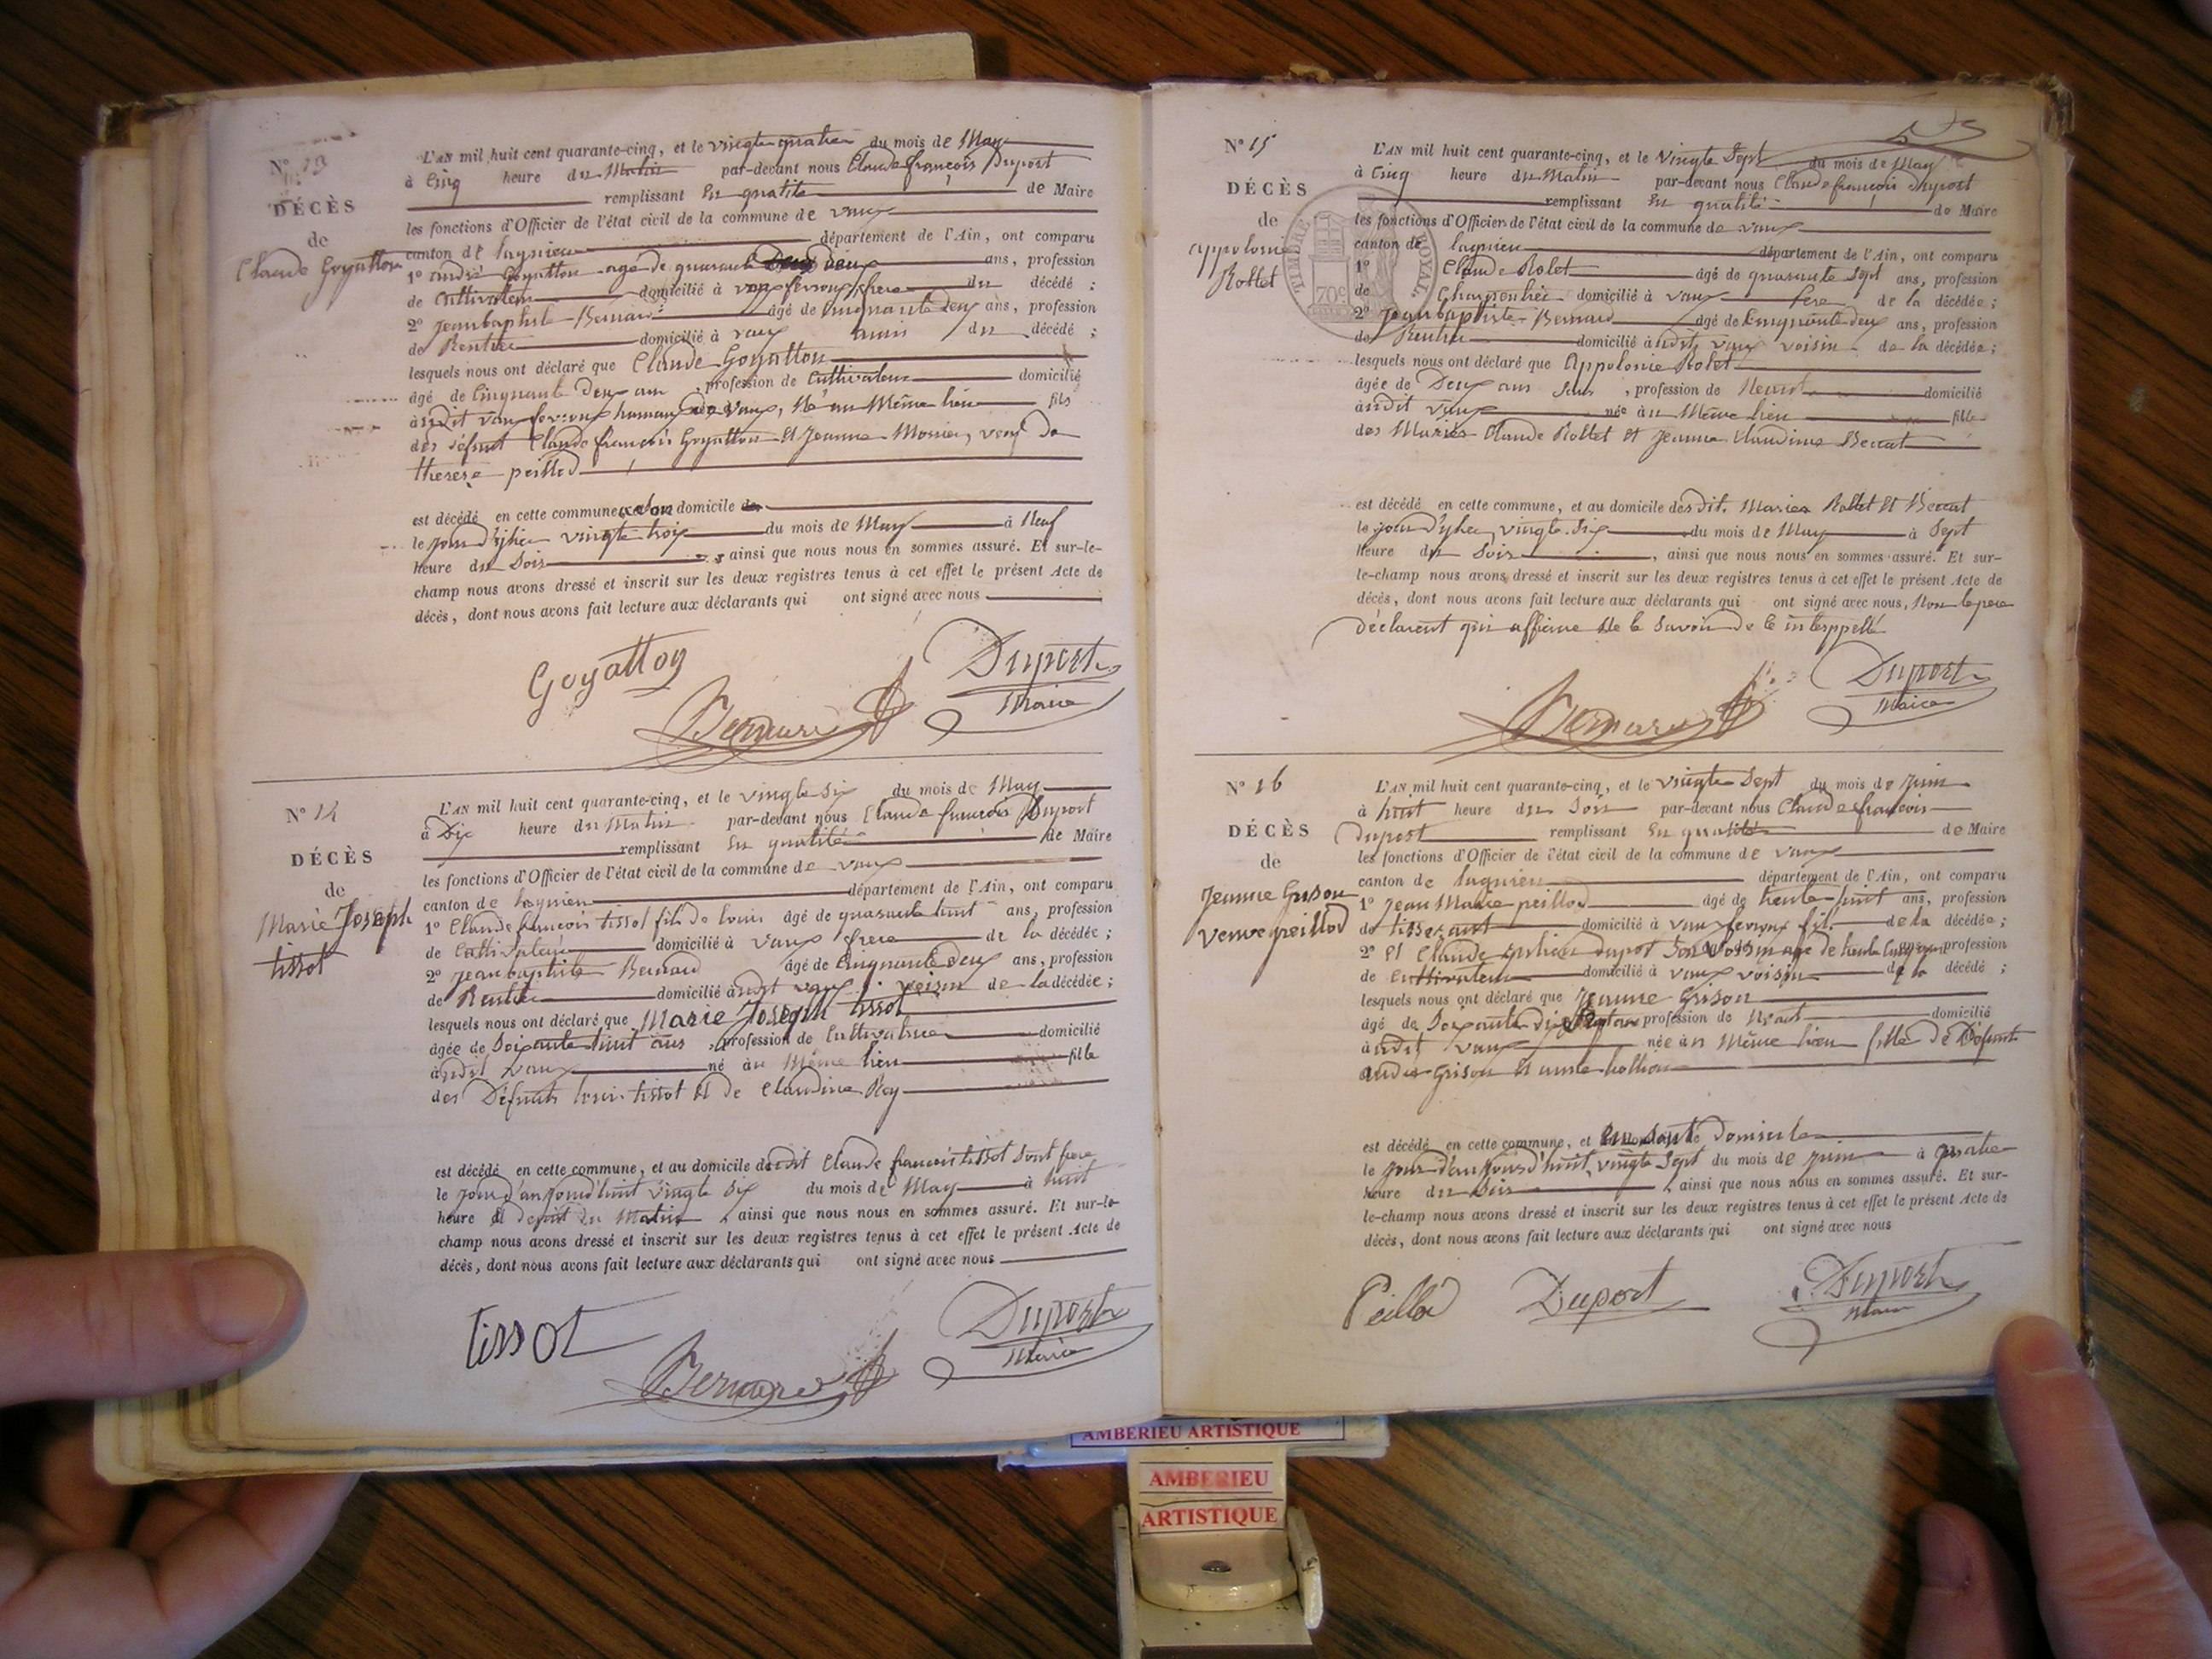 N° 13
DÉCÈS
de
Claude Goyatton
L'AN mil huit cent quarante-cinq, et le vingte quatre du mois de May
à Cinq heure du Matin par-devant nous Claude françois Duport
remplissant En qualité de Maire
les fonctions d'Officier de l'état civil de la commune de vaux
canton de lagnieu département de l'Ain, ont comparu
1° andré Goyatton agé de quarante deux ans, profession
de Cultivateur domicilié à vaux fevroux frere du décédé ;
2° Jean baptiste Bernard âgé de Cinquante deux ans, profession
de Rentier domicilié à vaux amis du décédé ;
lesquels nous ont déclaré que Claude Goyatton
âgé de Cinquante deux ans , profession de Cultivateur domicilié
àudit vaux fevroux de vaux, né au Même lieu fils
des défunt Claude françois Goyatton et Jeanne Monier, veuf de
therese peillod
est décédé en cette commune domicile
le jour d'yhier vingte trois du mois de May à Neuf
heure du Soir , ainsi que nous nous en sommes assuré. Et sur-le-
champ nous avons dressé et inscrit sur les deux registres tenus à cet effet le présent Acte de
décès, dont nous avons fait lecture aux déclarants qui ont signé avec nous
Goyatton
Bernard
Duport
Maire
N° 14
DÉCÈS
de
Marie Joseph
tissot
L'AN mil huit cent quarante-cinq, et le vingte Six du mois de May
à Dix heure du Matin par-devant nous Claude françois Duport
remplissant En qualité de Maire
les fonctions d'Officier de l'état civil de la commune de vaux
canton de lagnieu département de l'Ain, ont comparu
1° Claude françois tissot fils de louis âgé de quarante huit ans, profession
de Cultivateur domicilié à vaux frere de la décédée ;
2° Jean baptiste Bernard âgé de Cinquante deux ans, profession
de Rentier domicilié àudit vaux voisin de la décédée ;
lesquels nous ont déclaré que Marie Joseph tissot
âgée de Soixante huit ans , profession de Cultivatrice domicilié
àudit vaux né au Même lieu fille
des Défunts louis tissot et de Claudine Rey
est décédé en cette commune, et au domicile dudit Claude francois tissot Sont frere
le jour d'aujourd'huit vingte Six du mois de May à huit
heure et demit du Matin , ainsi que nous nous en sommes assuré. Et sur-le-
champ nous avons dressé et inscrit sur les deux registres tenus à cet effet le présent Acte de
décès, dont nous avons fait lecture aux déclarants qui ont signé avec nous
tissot
Bernard
Duport
Maire
N° 15
DÉCÈS
de
appolonie
Rollet
TIMBRE ROYAL
70c
L'AN mil huit cent quarante-cinq, et le vingte Sept du mois de May
à Cinq heure du Matin par-devant nous Claude françois Duport
remplissant En qualité de Maire
les fonctions d'Officier de l'état civil de la commune de vaux
canton de lagnieu département de l'Ain, ont comparu
1° Claude Rolet âgé de quarante Sept ans, profession
de Charpentier domicilié à vaux Pere de la décédée ;
2° Jean baptiste Bernard âgé de Cinquante deux ans, profession
de Rentier domicilié àudit vaux voisin de la décédée ;
lesquels nous ont déclaré que Appolonie Rolet
âgée de Deux ans , profession de domicilié
àudit vaux née au Même lieu fille
des Mariés Claude Rollet et Jeanne Claudine Berrat
est décédé en cette commune, et au domicile desdit. Mariés Rollet et Berrat
le jour d'yhier, vingte Six du mois de May à Sept
heure du Soir , ainsi que nous nous en sommes assuré. Et sur-
le-champ nous avons dressé et inscrit sur les deux registres tenus à cet effet le présent Acte de
décès, dont nous avons fait lecture aux déclarants qui ont signé avec nous, Non le pere
déclarent qui affirme Ne le Savoir de ce interppellé
Bernard
Duport
Maire
N° 16
DÉCÈS
de
Jeanne Grison
veuve peillod
L'AN mil huit cent quarante-cinq, et le vingte Sept du mois de Juin
à huit heure du Soir par-devant nous Claude francois
Duport remplissant En qualité de Maire
les fonctions d'Officier de l'état civil de la commune de vaux
canton de lagnieu département de l'Ain, ont comparu
1° Jean Marie peillod âgé de trente huit ans, profession
de tisserant domicilié à vaux fevroux fils de la décédée ;
2° Et Claude Julien Duport Son voisin age de trente Cinq ans profession
de Cultivateur domicilié à vaux voisin de la décédé ;
lesquels nous ont déclaré que Jeanne Grison
âgé de Soixante dix Sept ans profession de domicilié
àudit vaux née au Même lieu fille de Défunts
andré Grison et
est décédé en cette commune, et domicile
le jour d'aujourd'huit, vingte Sept du mois de Juin à quatre
heure du Soir , ainsi que nous nous en sommes assuré. Et sur-
le-champ nous avons dressé et inscrit sur les deux registres tenus à cet effet le présent Acte de
décès, dont nous avons fait lecture aux déclarants qui ont signé avec nous
Peillod
Duport
Duport
Maire
AMBERIEU ARTISTIQUE
AMBERIEU
ARTISTIQUE